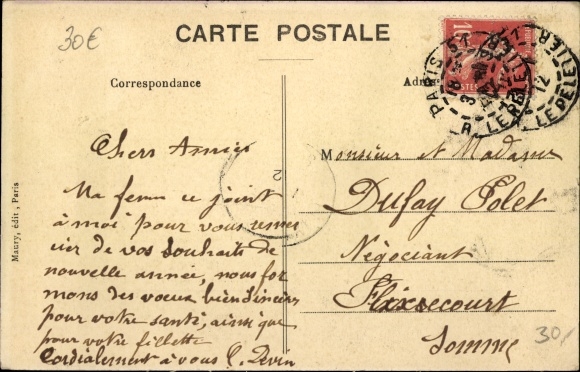 30€
CARTE POSTALE
Correspondance
Chers Amies
Ma femme ce joint
à moi pour vous remer
cier de vos souhaits de
nouvelle année, nous for
mons des vœux bien sincères
pour votre santé, ainsi que
pour votre fillette
Cordialement à vous
Maury, édit, Paris
PARIS
12
R. LE PELETIER
Monsieur et Madame
Dufay Polet
Négociant
Flixecourt
Somme
30,-